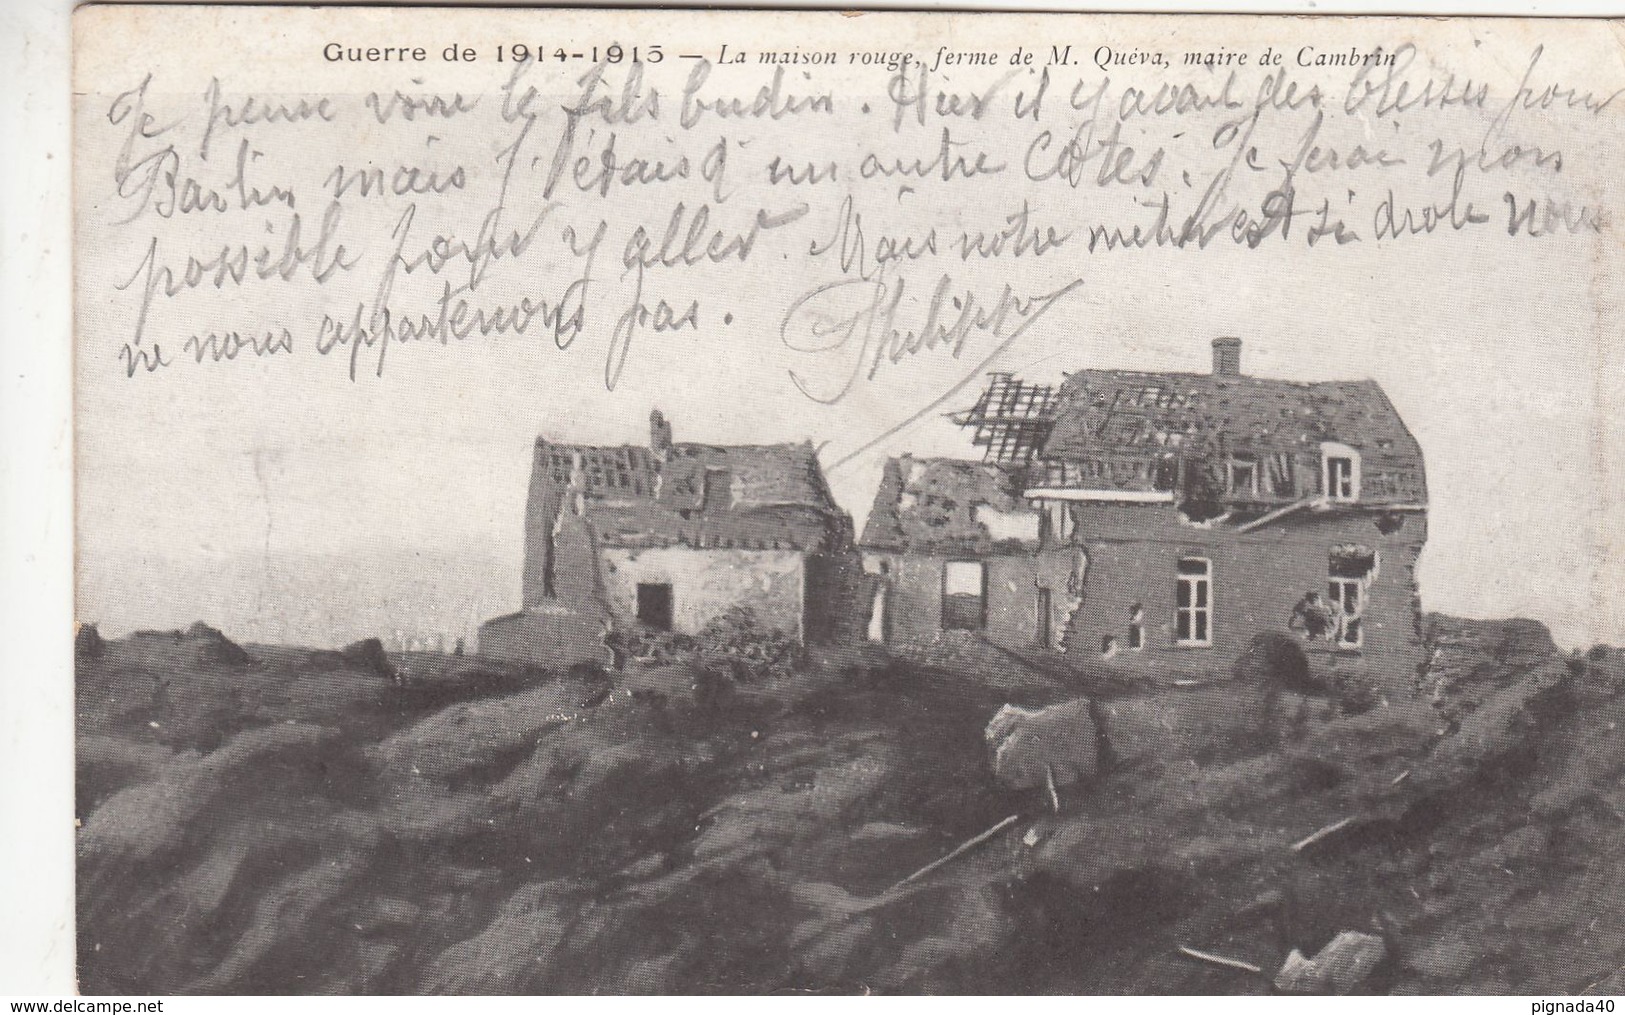 Guerre de 1914-1915 — La maison rouge, ferme de M. Quéva, maire de Cambrin
Je pense voire le fils budin. Hier il y avait des blessés pour
Barlin mais j'étais d'un autre Cotés. Je ferai mon
possible pour y aller. Mais notre métier est si drole nous
ne nous appartenons pas. Philippe
delcampe.net
pignada40